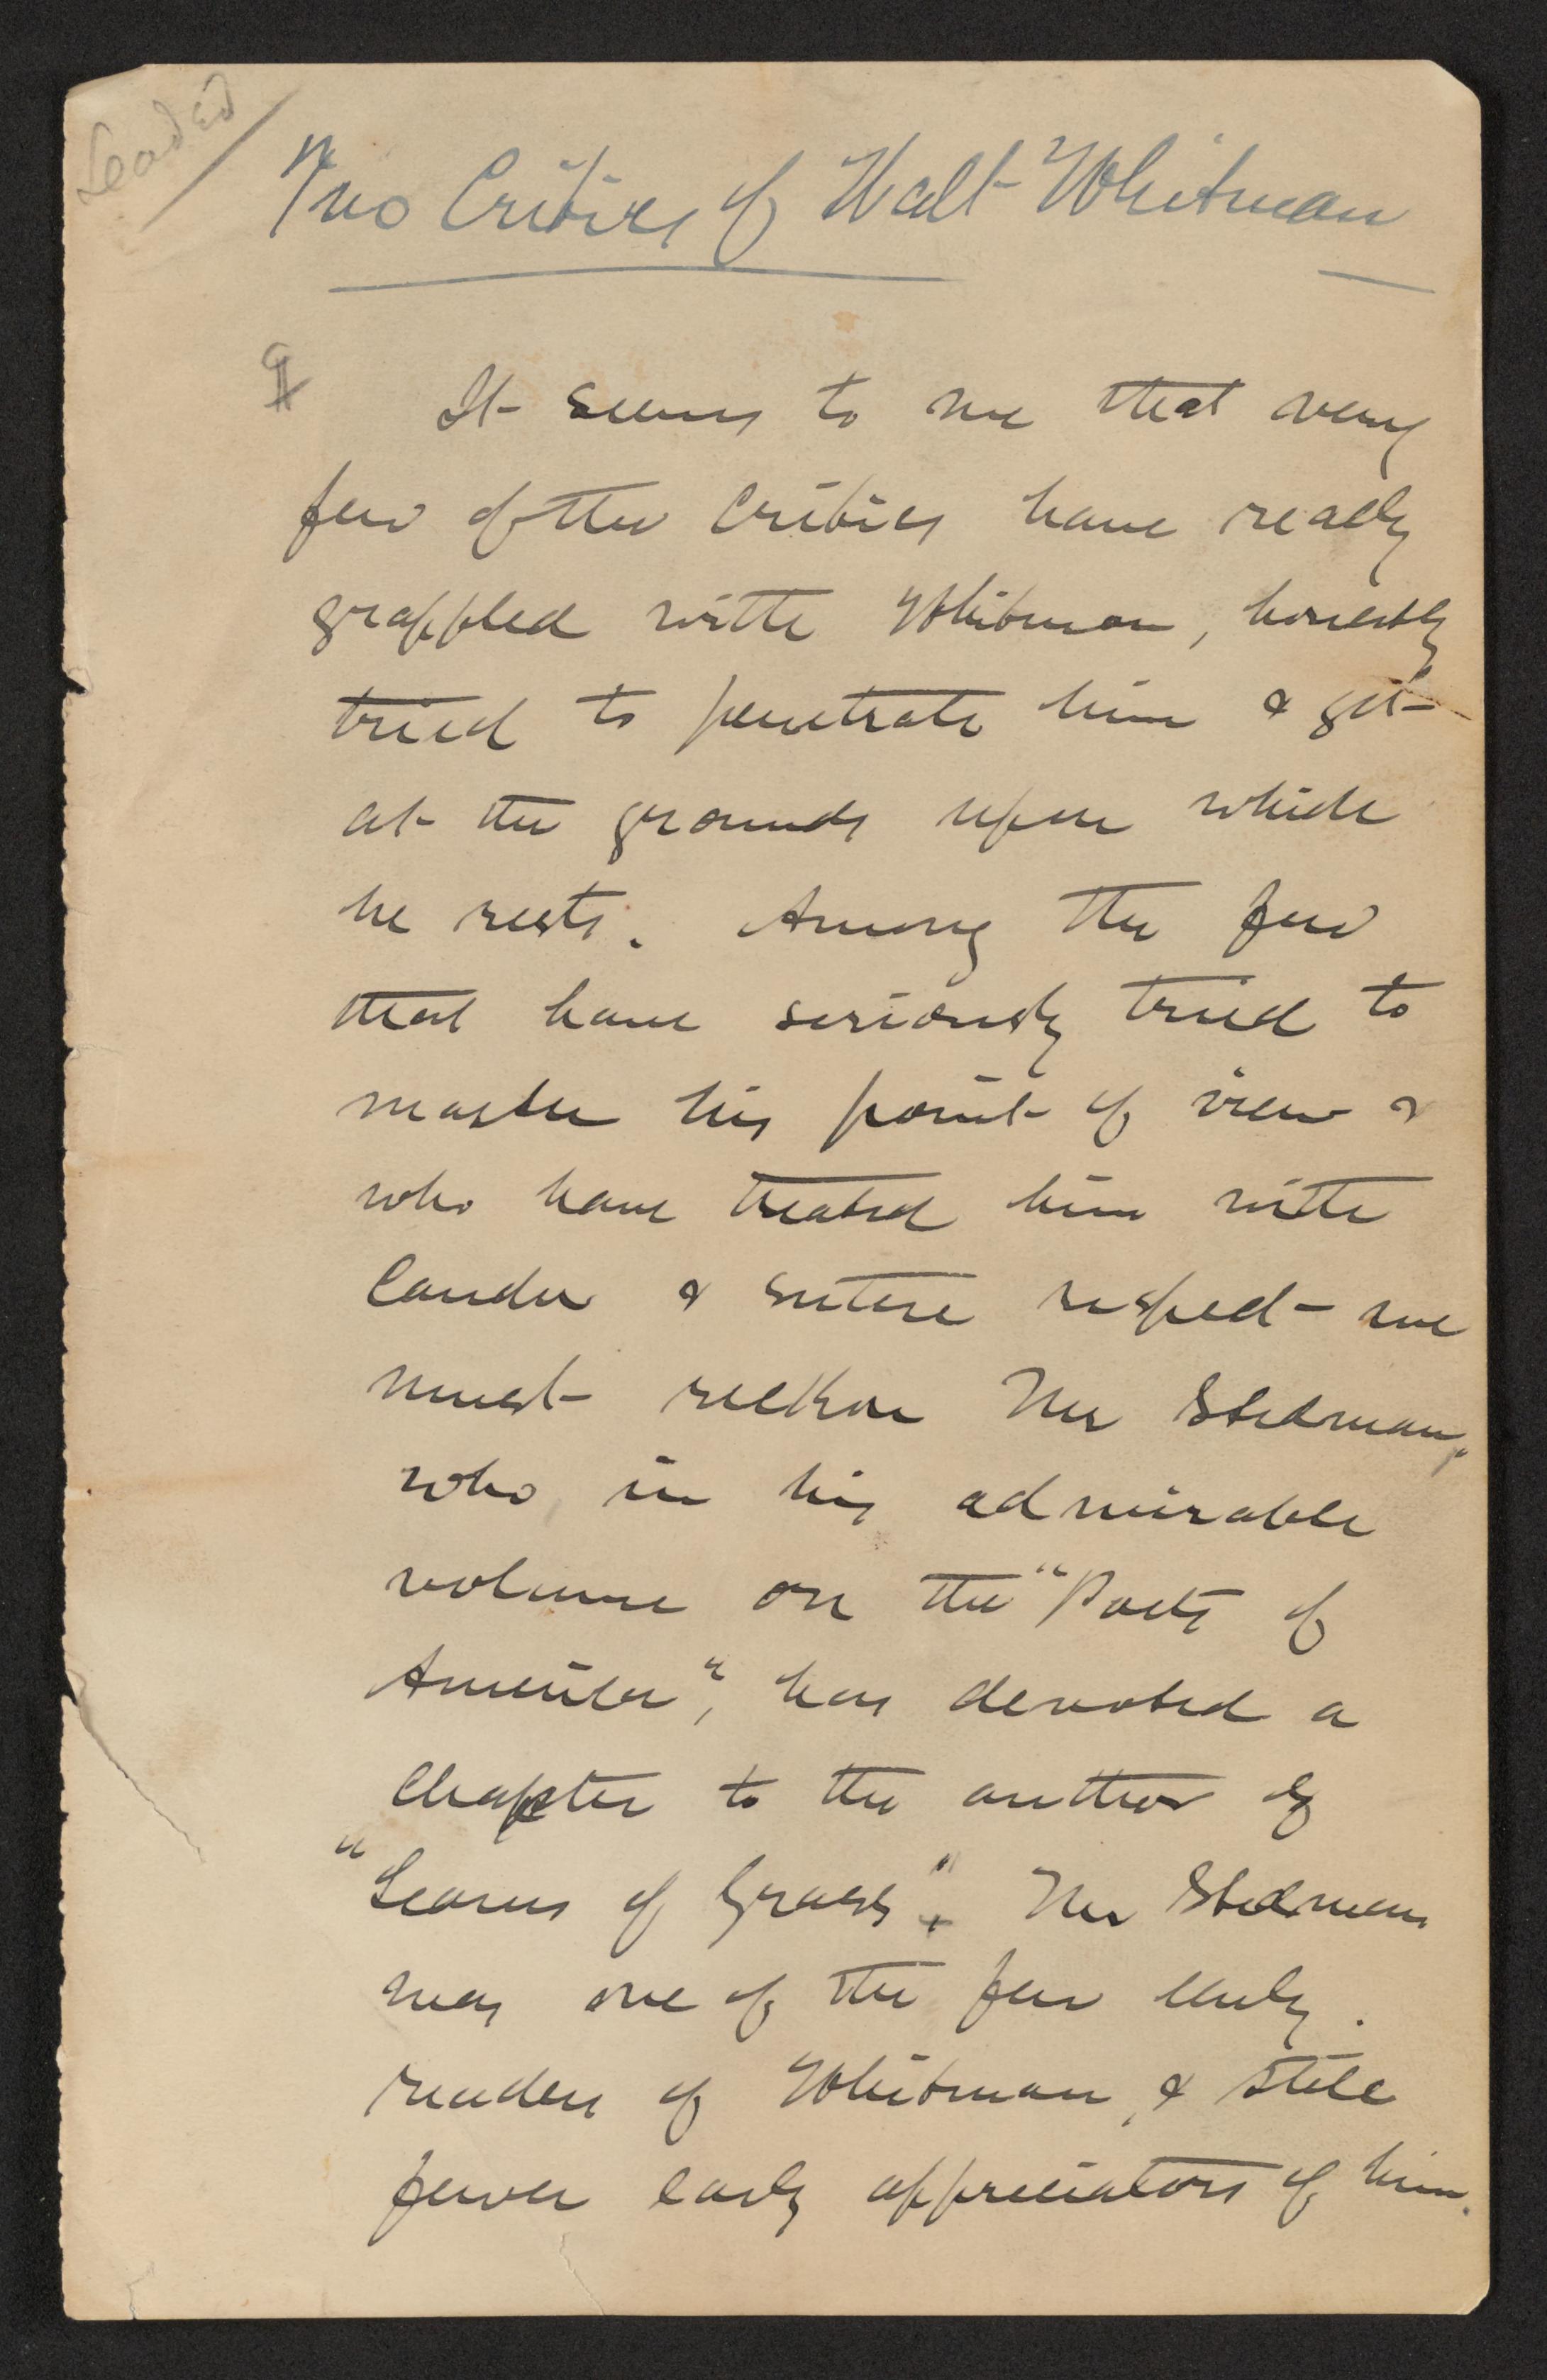 Leaded
Two Critics of Walt Whitman
¶ It seems to me that very
few of the critics have really
grappled with Whitman, honestly
tried to penetrate him & get
at the grounds upon which
he rests. Among the few
that have seriously tried to
master his point of view &
who have treated him with
candor & entire respect we
must reckon Mr Stedman,
who in his admirable
volume on the "Poets of
America", has devoted a
chapter to the author of
"Leaves of Grass". Mr Stedman
was one of the few early
readers of Whitman, & still
fewer early appreciators of him.